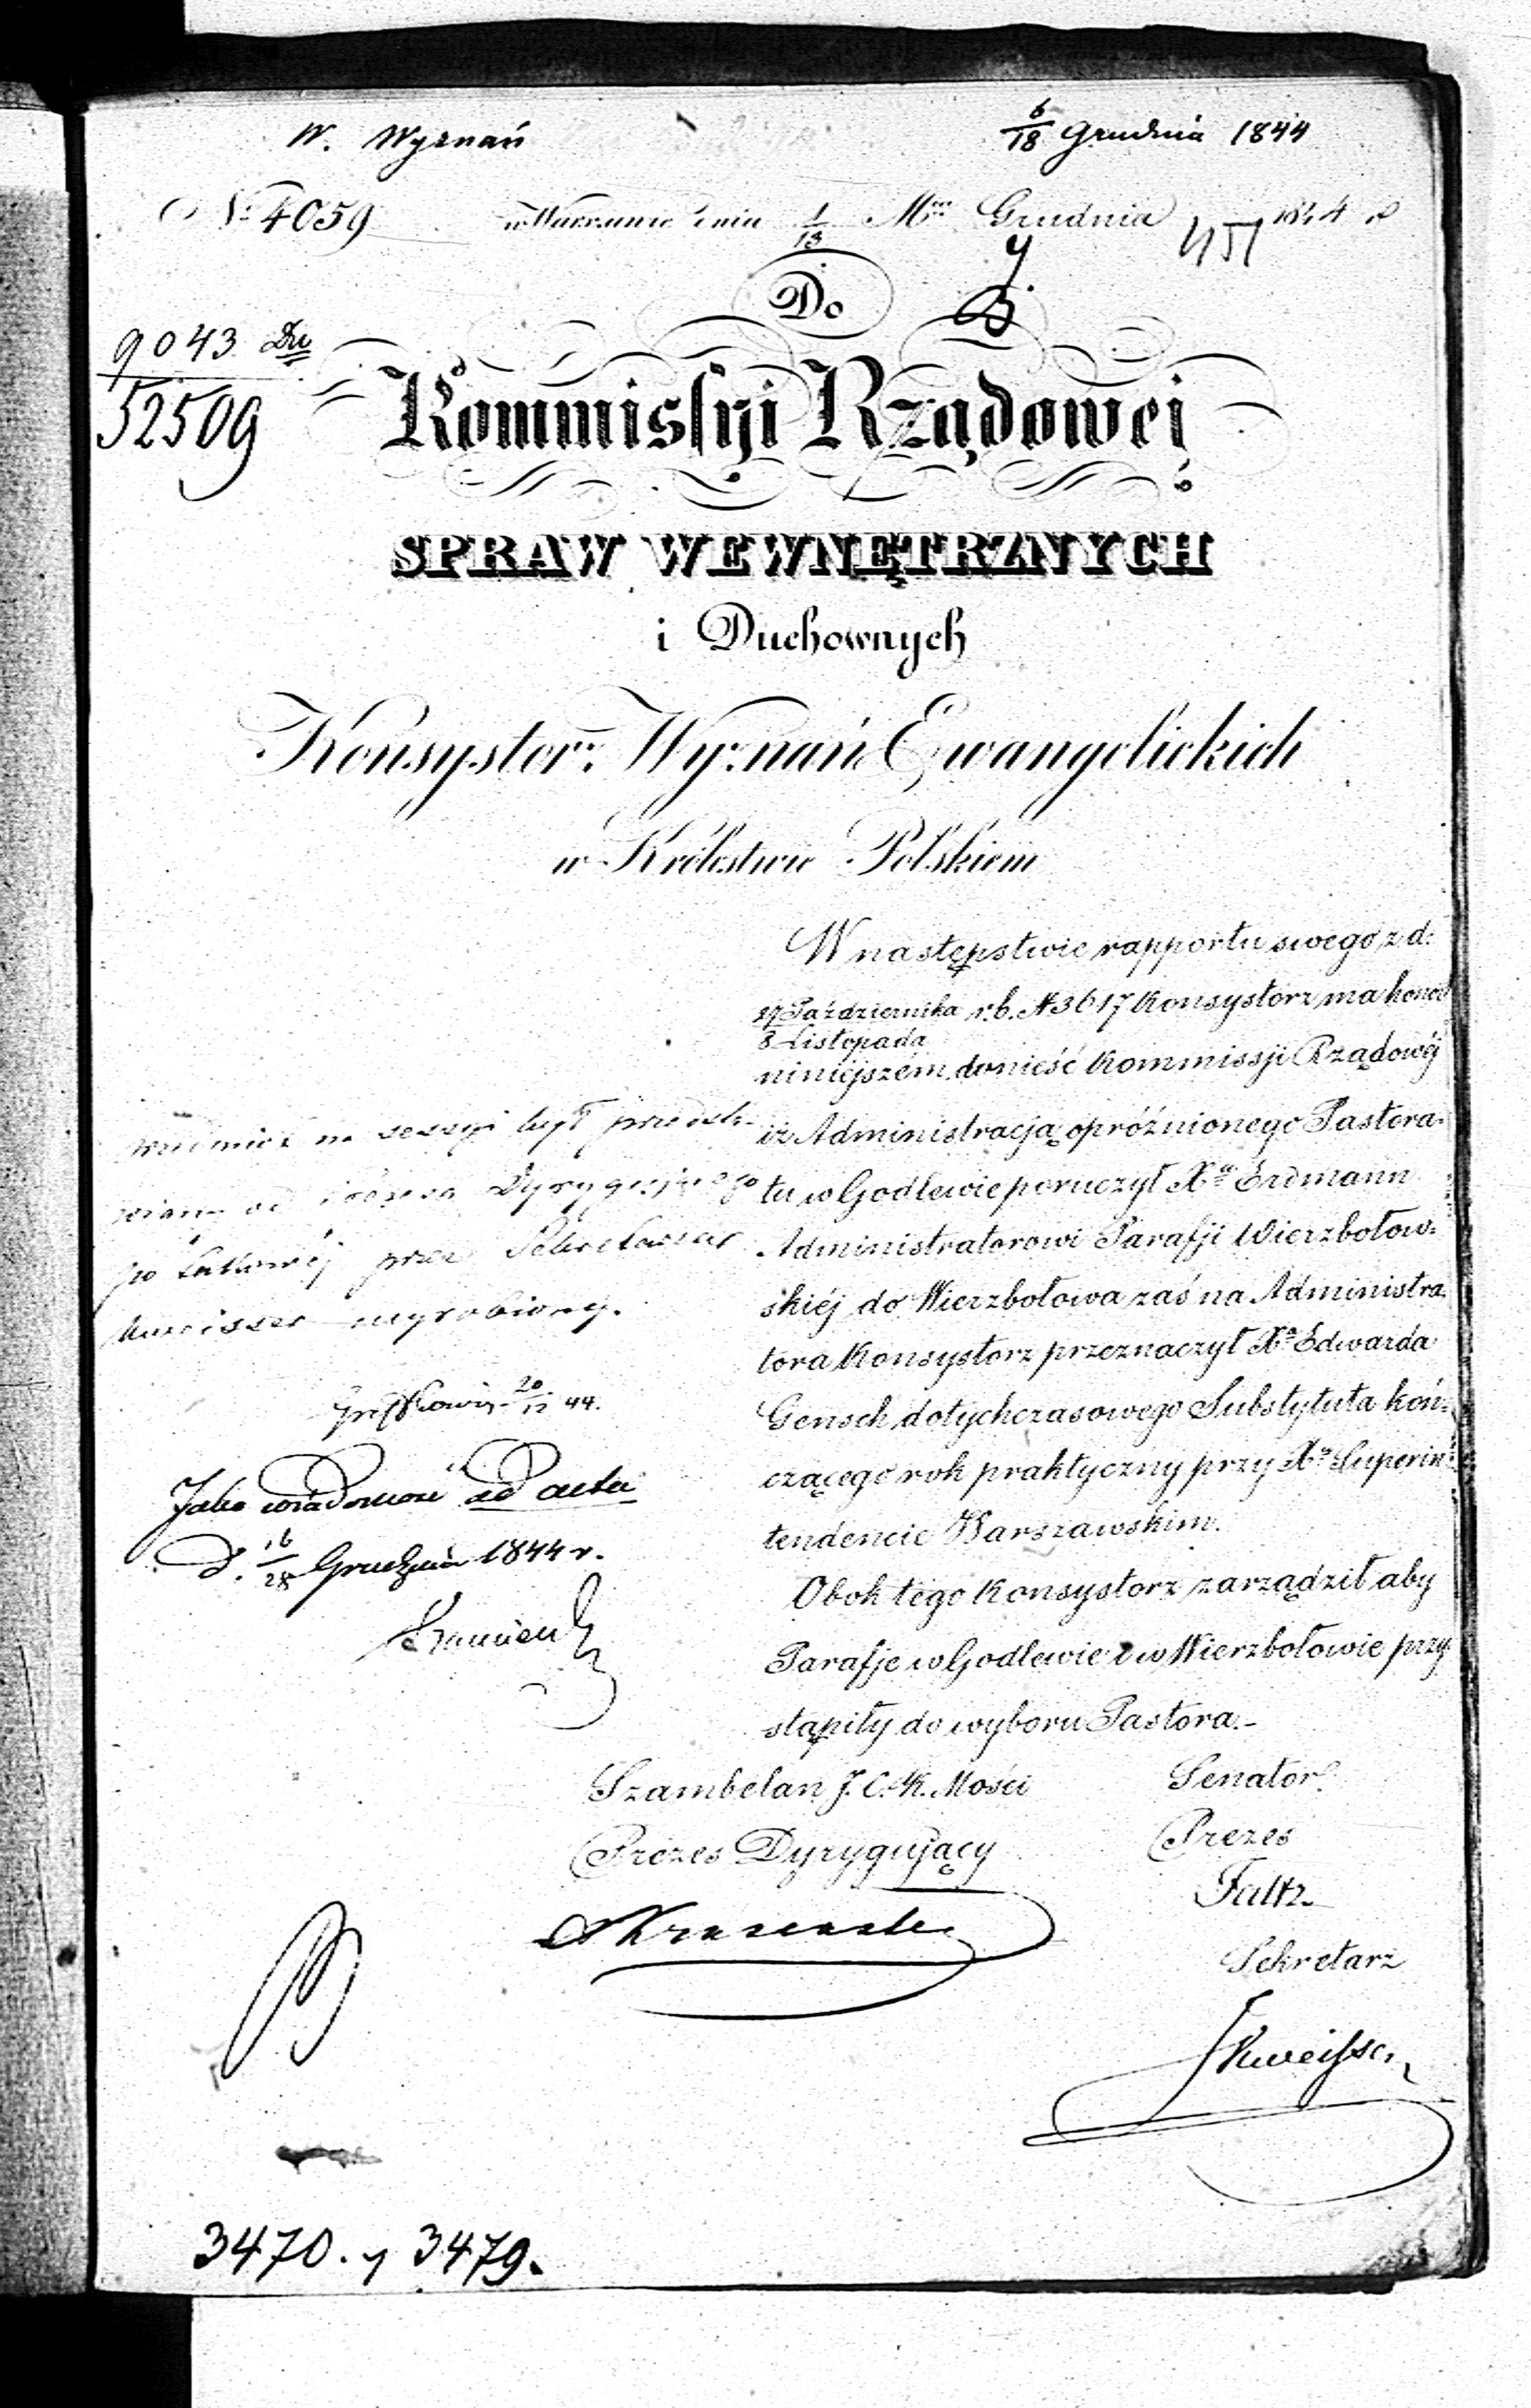 W. Wyznań
6/18 Grudnia 1844
No 4059 w Warszawie dnia 1/13 Mca Grudnia 1844 r
451
Do
9043
52509
Kommissyi Rządowej
SPRAW WEWNĘTRZNYCH
i Duchownych
Konsystorz Wyznań Ewangelickich
w Królestwie Polskiem
W następstwie rapportu swego z d:
27 Października r.b. N 3617 Konsystorz ma honor
8 Listopada
niniejszém donieść Kommissji Rządowéj
iż Administracją opróźnionego Pastora-
tu w Godlewie poruczył Xu Erdmann
Administratorowi Parafji Wierzbołow-
skiéj do Wierzbołowa zaś na Administra-
tora Konsystorz przeznaczył Xa Edwarda
Gensch dotychczasowego Substytuta koń-
czącego rok praktyczny przy Xu Superin-
tendencie Warszawskim.
Obok tego Konsystorz zarządził aby
Parafje w Godlewie i w Wierzbołowie przy-
stąpiły do wyboru Pastora.-
na sessyi był
Dyrygującego
przez Sekretarza
wyrobiony.
20/12 44.
Jako wiadomość ad acta
D. 16/28 Grudnia 1844 r.
Szambelan J. C. K. Mości
Prezes Dyrygujący
Senator
Prezes
Faltz
Sekretarz
3470. y 3479.